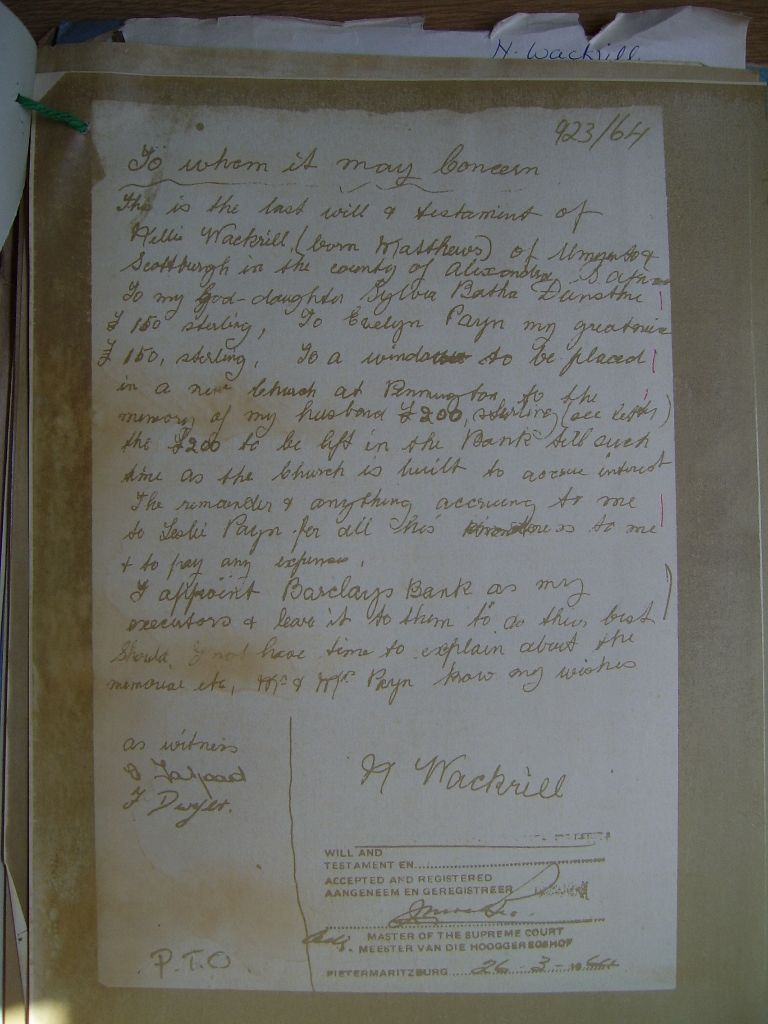 N. Wackrill
923/64
To whom it may Concern
This is the last will & testament of
Nellie Wackrill, (born Matthews) of Umzinto &
Scottburgh in the county of Alexandra, S Afr
To my God-daughter Sylvia Batha Dunstone
£150 sterling, To Evelyn Payn my great niece
£150, sterling, To a window to be placed
in a new Church at Pennington to the
memory of my husband £200, sterling (see letter)
the £200 to be left in the Bank till such
time as the Church is built to accrue interest
The remainder & anything accruing to me
to Leslie Payn for all his to me
& to pay any expenses.
I appoint Barclays Bank as my
executors & leave it to them to do their best
Should I not have time to explain about the
memorial etc, Mr & Mrs Payn know my wishes
as witness
F Dwyer.
N Wackrill
WILL AND
TESTAMENT EN
ACCEPTED AND REGISTERED
AANGENEEM EN GEREGISTREER
MASTER OF THE SUPREME COURT
MEESTER VAN DIE HOOGGEREGSHOF
PIETERMARITZBURG 26-3-1964
P.T.O